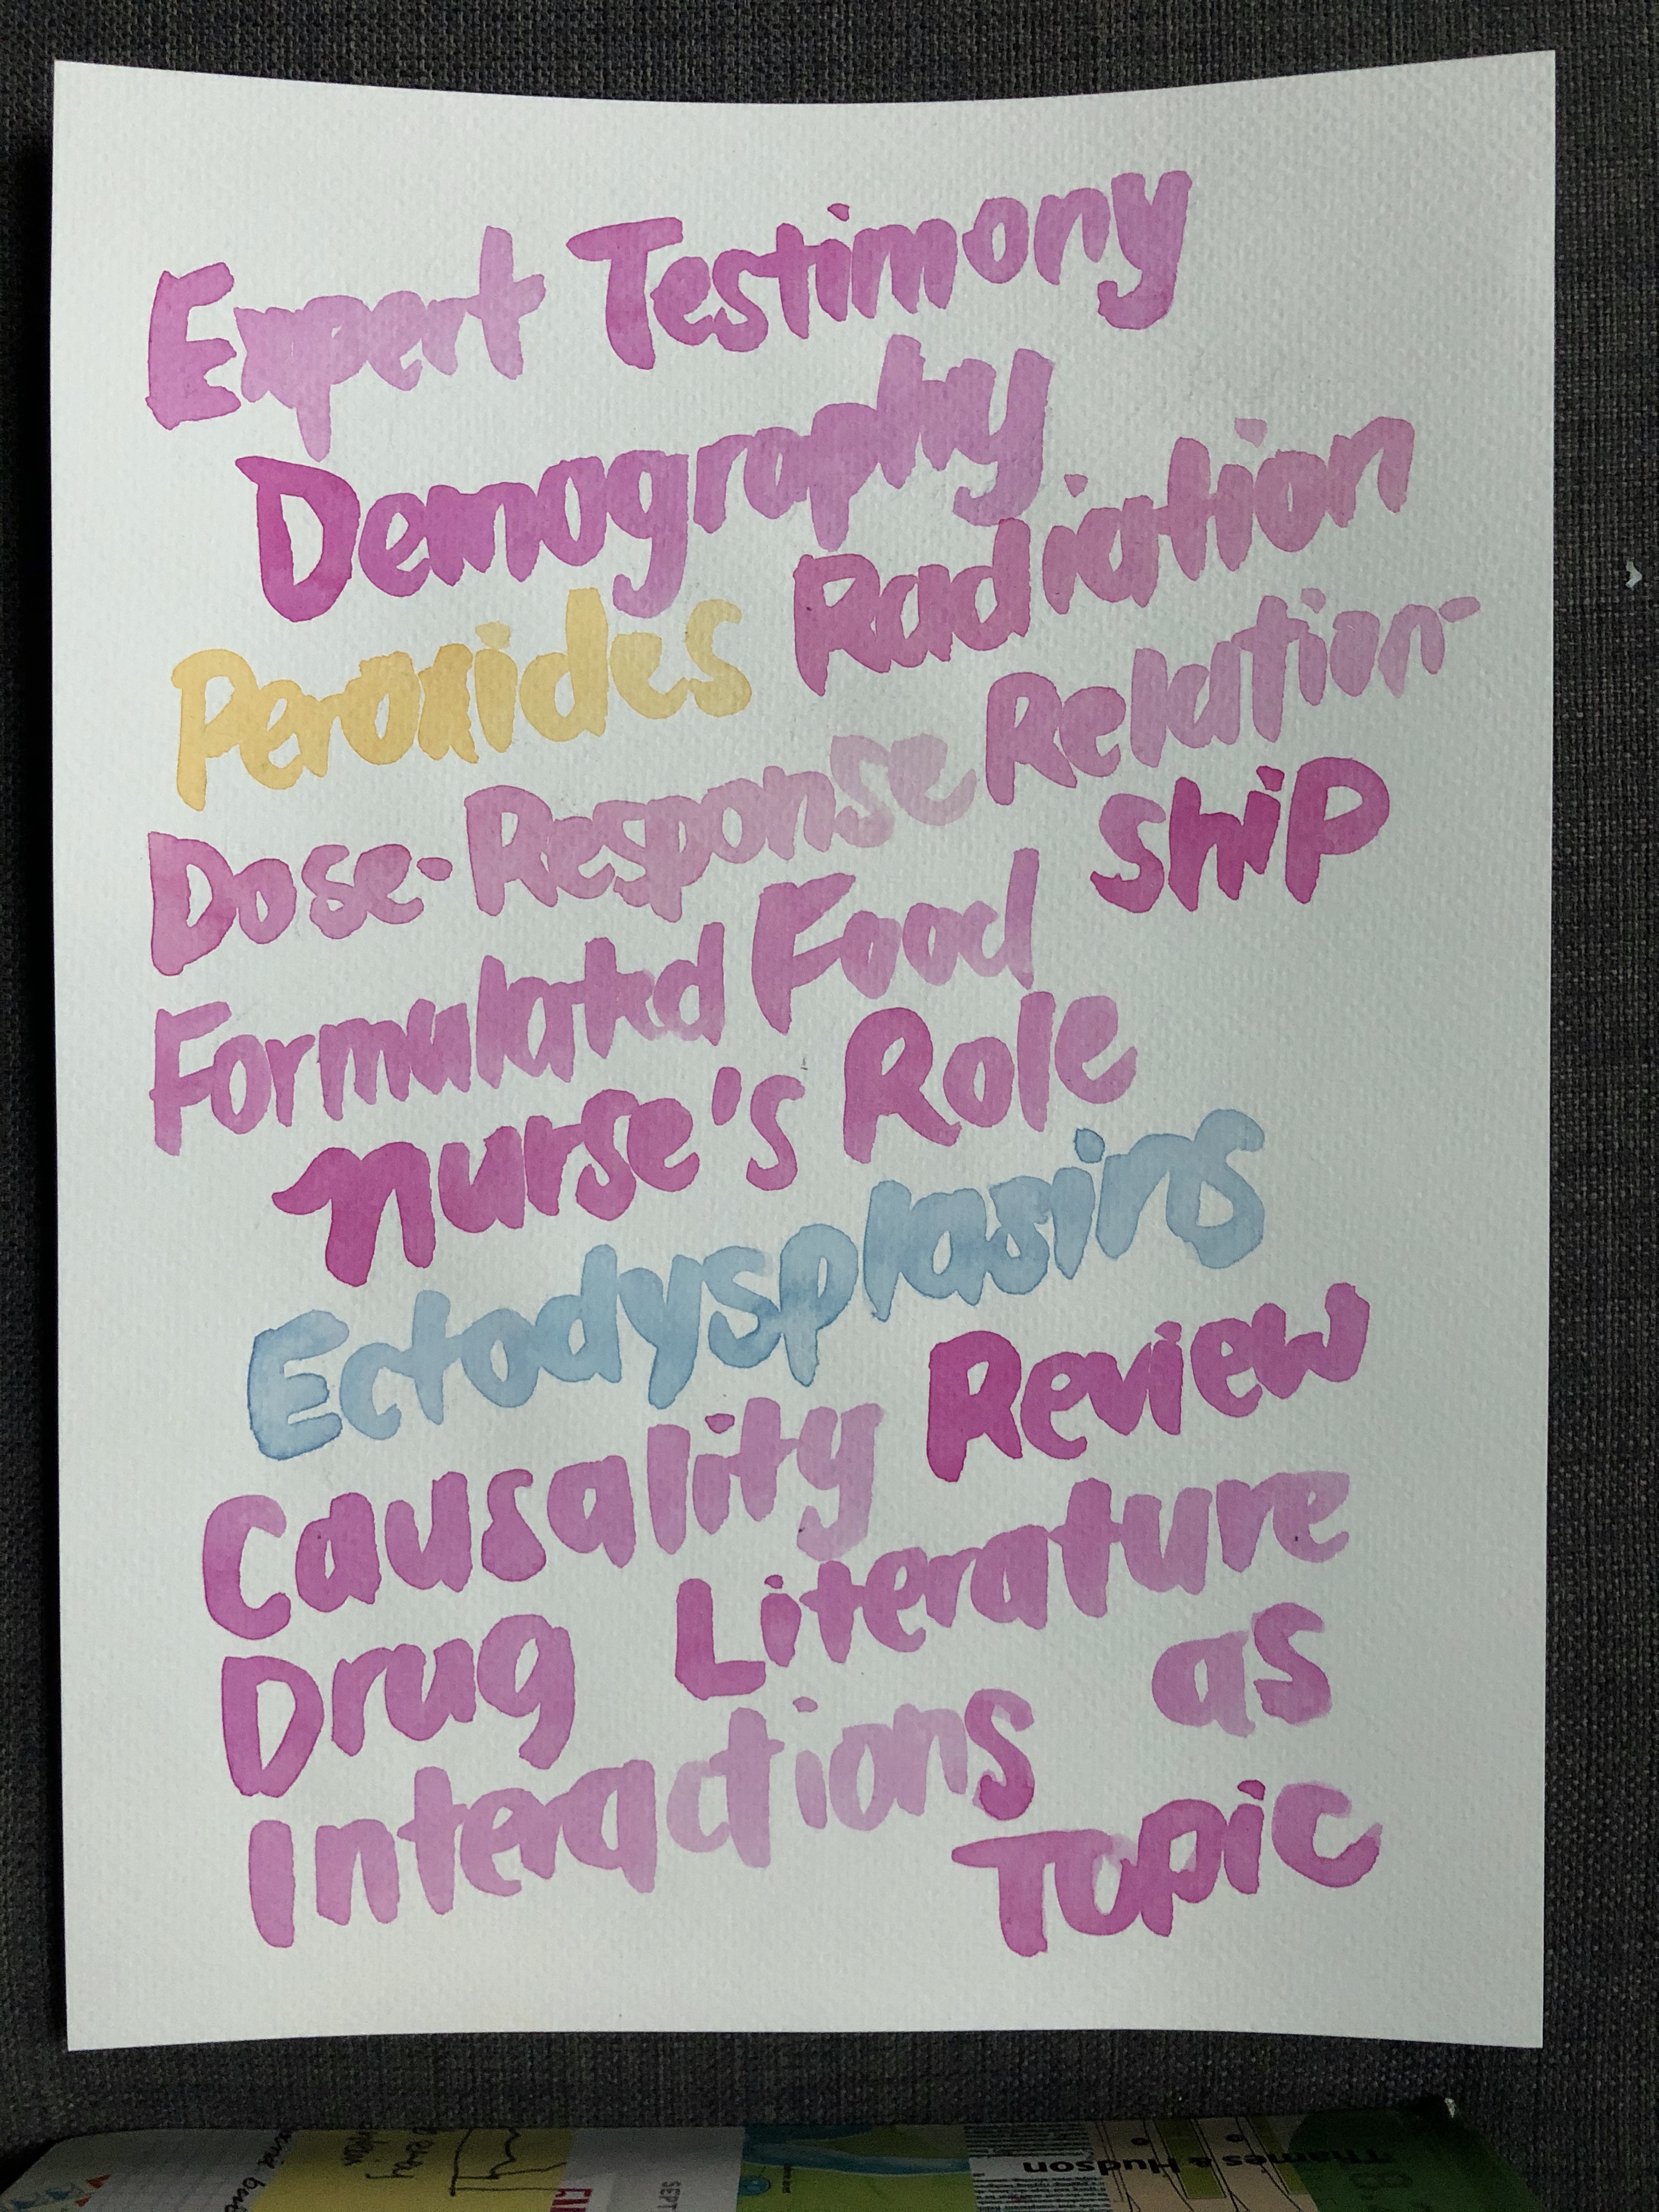 Expert Testimony
Demography
Peroxides Radiation
Dose-Response Relation-
ship
Formulated Food
nurse's Role
Ectodysplasins
Causality Review
Drug Literature
Interactions as
Topic
Thames & Hudson
SEPT